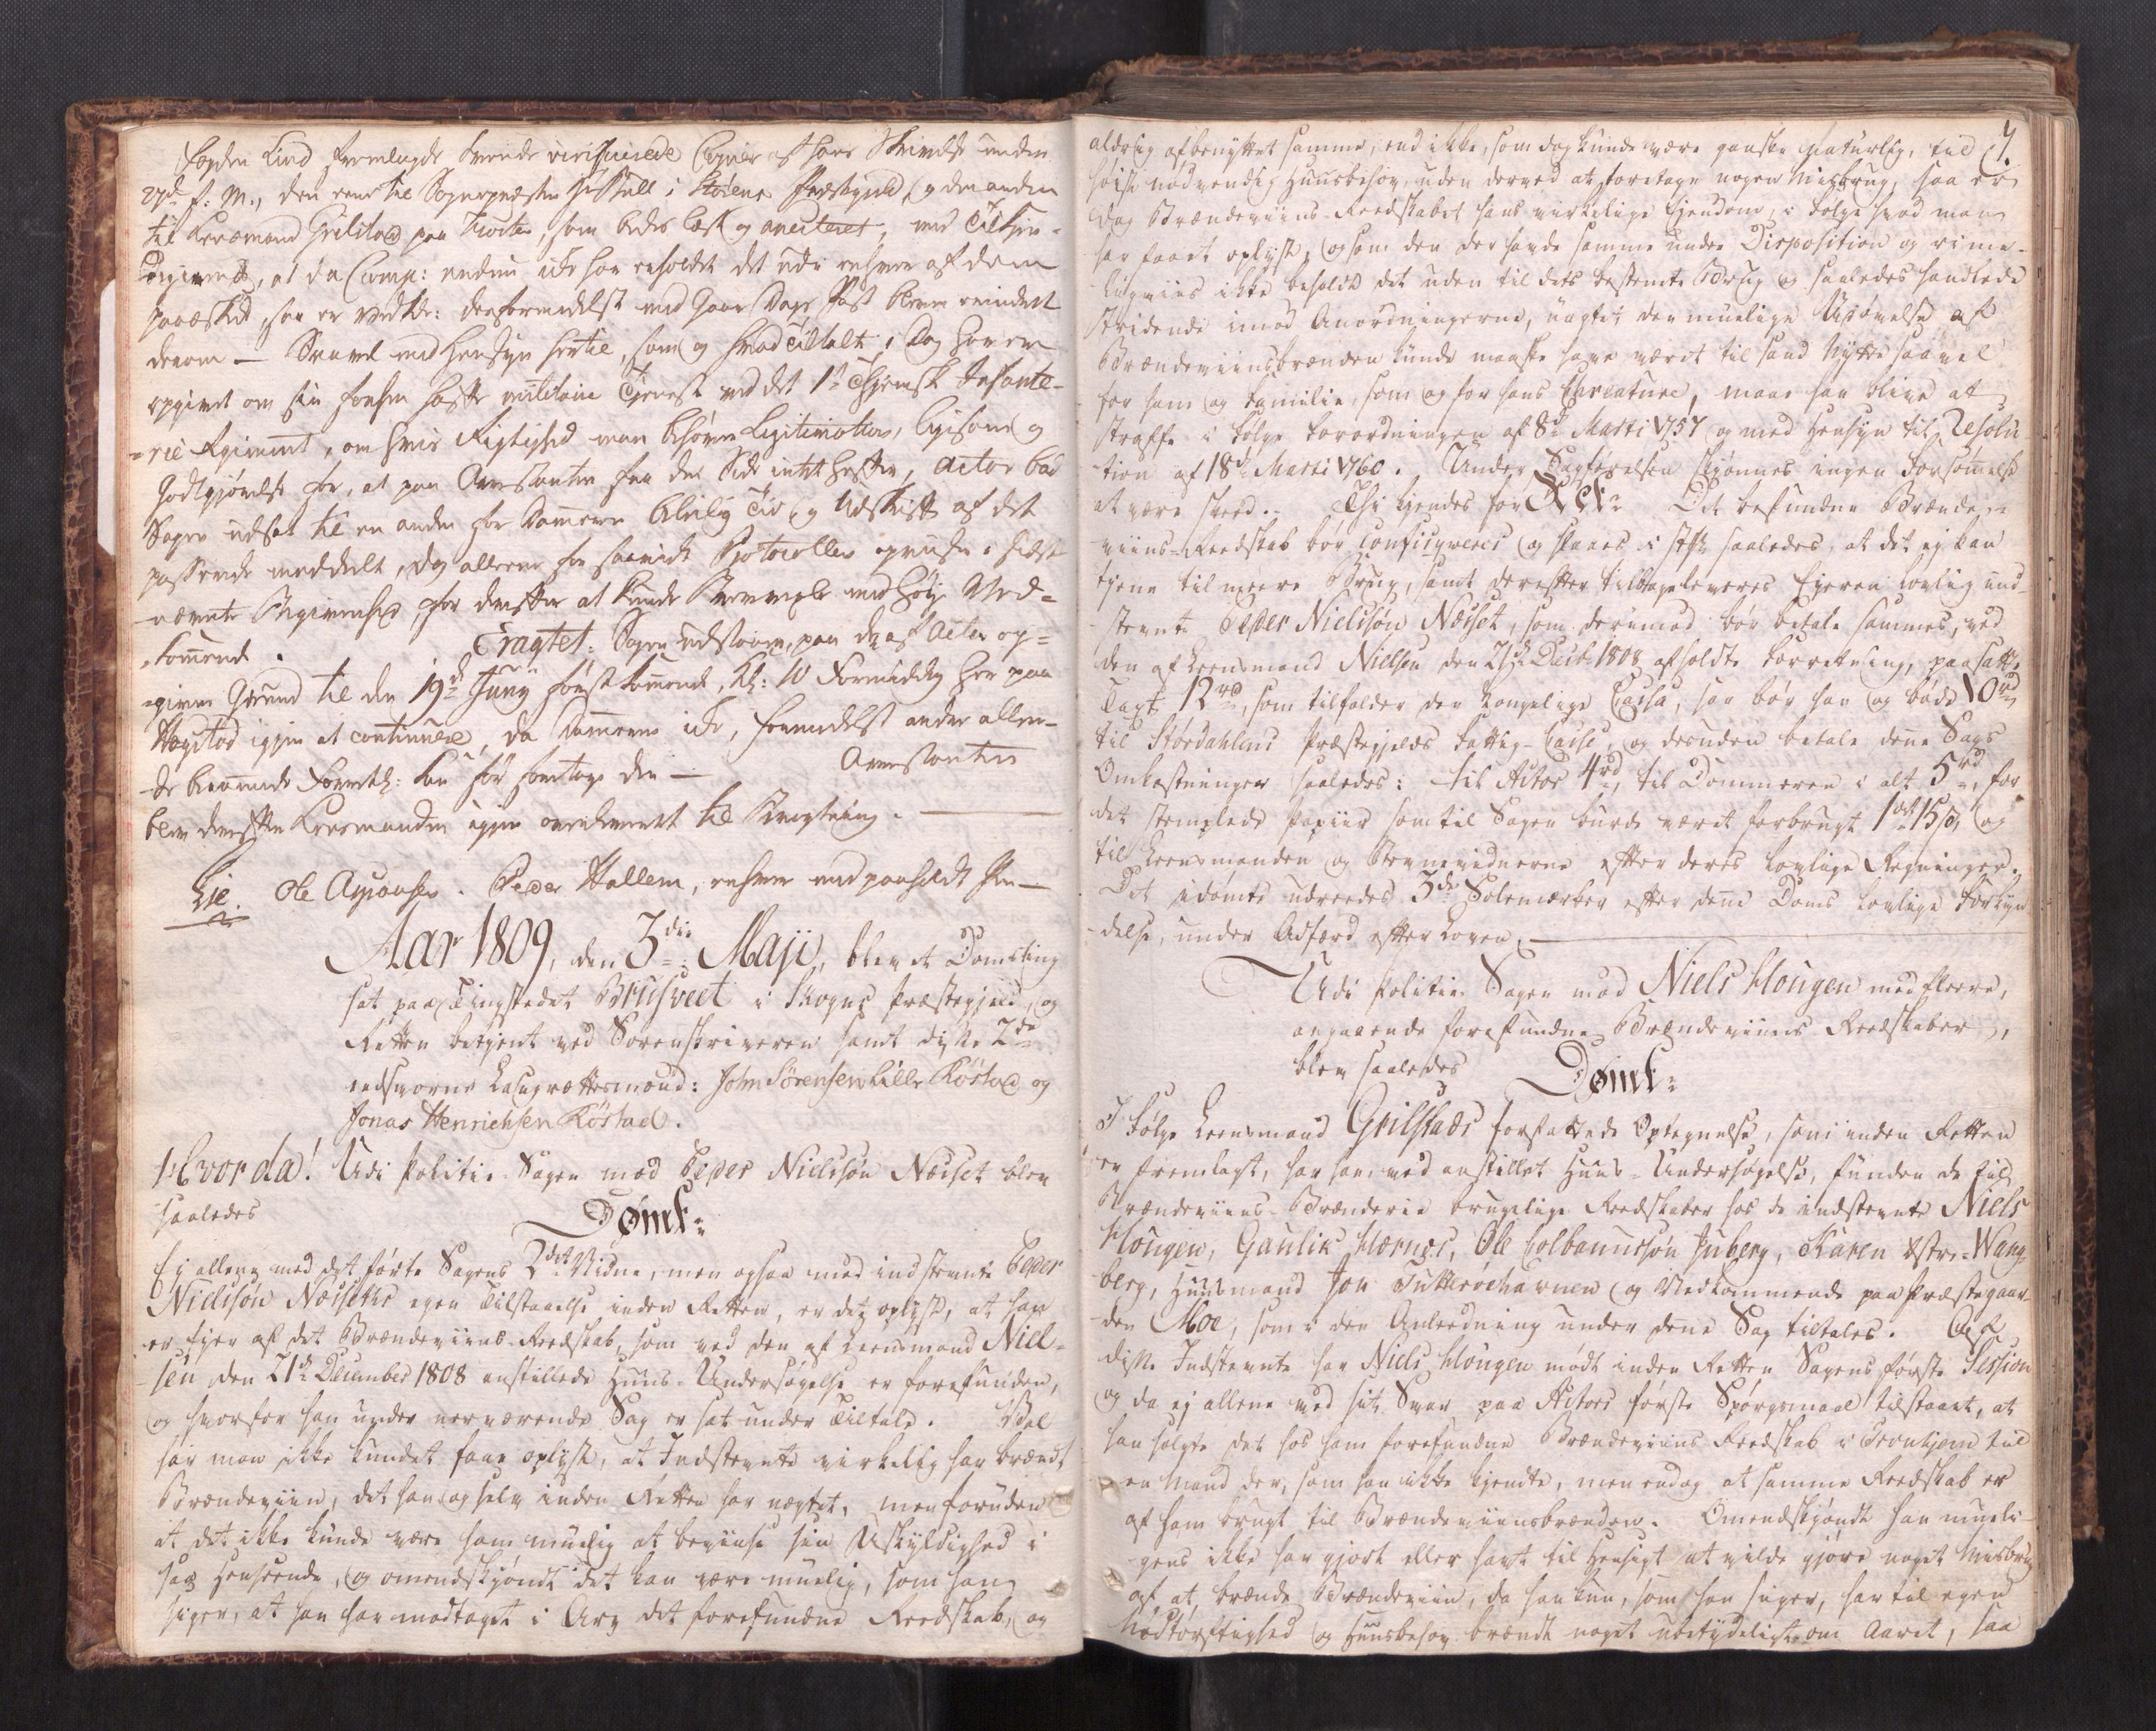 Fogden Lind fremlagde tvende verificerede Copier af hans Skrivelse under
27de f: M., den eene til Sognepræsten i Størens Præstegjeld, og den anden
til Lensmand Grilstad paa, som bedes læst og anecteret, med Tilkjen-
degivend, at da Comp: endnu ikke har erholdet det udi enhver af dem
paaæskede, saa er Vedkk: desformedelst med Gaars Dags Post bleven erindret
derom — Saavel med Hensyn hertil, som og hvad Tiltalte i Dag haver
opgivet om sin forhen hafte militaire Tjeneste ved det 1ste Thjemsk Infante-
rie Regiment, om hvis Rigtighed man behøver Legitimation, ligesom og
Godtgjørelse for, at paa Arrestanten fra den Side intet hefter, Actor bad
Sagen udsat til en anden for Dommeren beleilig Tid og Udskrift af det
passerede meddeelt, dog alleene for saavidt Protocollen opviser sidst
nævnte Begivenhed, for derefter at kunde Brevvexle med høje Ved-
kommende. Eragtet: Sagen udstaaer, paa den af Actor op-
givne Grund til den 19de Junÿ førstkommende, Kl: 10 Formiddag her paa
Hegstad igjen at continuere, da Dommeren ikke, formedelst andre allere-
de berammede Forretn: kan før foretage den — Arrestanten
blev derefter Lensmanden igjen overleveret til Bevogtning. —
Lie. Ole Aspaasen. Peder Hallem, enhver med paaholdt Pen —
Aar 1809, den 3die Maji, blev et Domsting
sat paa Tingstedet Brusveet i Skogns Præstegjeld, og
Retten betjent ved Sorenskriveren samt disse 2de
eedsvorne Laugrettesmænd: John Sørensen Lille Røstad og
Jonas Henrichsen Røstad.
Hvor da! Udi Politie-Sagen mod Peder Nielssøn Næsset blev
saaledes
Dømt:
Ej alleene med det førte Sagens 2det Vidne, men ogsaa med indstevnte Peder
Nielssøn Næssets egen Tilstaaelse inden Retten, er det oplyst, at han
er Ejer af det Brændeviins-Reedskab, som ved den af Leensmand Niel-
sen den 21de December 1808 anstillede Huus-Undersøgelse er forefunden,
og hvorfor han under nærværende Sag er sat under Tiltale. Vel
har man ikke kundet faae oplyst, at Indstevnte virkelig har brændt
Brændeviin, det han og selv inden Retten har nægtet, men foruden
at det ikke kunde være ham muelig at beviise sin Uskyldighed i
saa Henseende, og omendskjøndt det kan være muelig, som han
siger, at han har modtaget i Arv det forefundne Reedskab, og
7.
aldrig afbenyttet samme, end ikke, som dog kunde være ganske naturlig, til
høist nødvendig Huusbehov, uden derved at foretage nogen Misbrug, saa er
dog Brændeviins-Reedskabet hans virkelige Ejendom, i Følge hvad man
har faaet oplyst, og som den der havde samme under Disposition og rime-
ligviis ikke beholdt det uden til dets bestemte Brug og saaledes handlede
stridende imod Anordningerne, uagtet den muelige Udøvelse af
Brændeviinsbrænden kunde maaske have været til sand Nytte saavel
for ham og Familie, som og for hans Creature, maae han blive at
straffe i Følge Forordningen af 8de Marti 1757 og med Hensyn til Resolu-
tion af 18de Marti 1760. Under Sagførelsen skjønnes ingen Forsømmelse
at være skeed. — Thi kjendes for Ret: Det befundne Brænde-
viins-Reedskab bør confisqveres og slaaes i stykker saaledes, at det ej kan
tjene til meere Brug, samt derefter tilbageleveres Ejeren lovlig ind-
stevnte Peder Nielssøn Næsset, som derimod bør betale sammes, ved
den af Leensmand Nielsen den 21de Decbr 1808 afholdte Forretning, paasatte
Taxt 12 rd, som tilfalder den kongelige Cassa, saa bør han og bøde 10 rd
til Størdahlens Præstegjelds Fattig-Casse, og desuden betale denne Sags
Omkostninger saaledes: til Actor 4 rd, til Dommeren i alt 5 rd, for
det stemplede Papiir som til Sagen burde været forbrugt 1 ort 15 s, og
til Leensmanden og Stevnevidnerne efter deres lovlige Regninger.
Det idømte udreedes 3de Solemærker efter denne Doms lovlige Forkyn-
delse, under Adfærd efter Loven. —
Udi Politie Sagen mod Niels Hougen med fleere,
angaaende forefundne Brændeviins Reedskaber,
blev saaledes
Dømt:
I Følge Leensmand Grilstads forfattede Optegnelse, som inden Retten
er fremlagt, har han, ved anstillet Huus-Undersøgelse, funden de til
Brændeviins-Brænderie brugelige Reedskaber hos de indstevnte Niels
Hougen, Gaulik Hærnes, Ole Colbanussøn Juberg, Karen østre-Wang-
berg, Huusmand Jon Tutterøehavnen og Vedkommende paa Præstegaar-
den Moe, som i den Anleedning under denne Sag tiltales. Af
disse Indstevnte har Niels Hougen mødt inden Retten Sagens første Session
og da ej allene ved sit Svar paa Actors første Spørgsmaal tilstaaet, at
han solgte det hos ham forefundne Brændeviins Reedskab i Tronhjem til
en Mand der, som han ikke kjendte, men endog at samme Reedskab er
af ham brugt til Brændeviinsbrænden. Omendskjøndt han mueli-
gens ikke har gjort eller havt til Hensigt at vilde gjøre noget Misbrug
af at brænde Brændeviin, da han kun, som han siger, har til egen
Nødtørftighed og Huusbehov brændt noget ubetydeligt om Aaret, saa